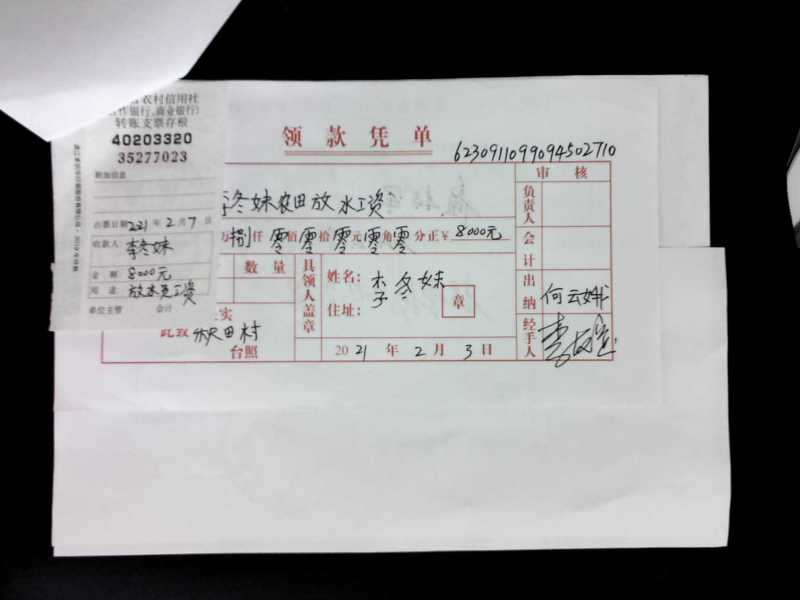 农村信用社
作银行、商业银行)
转账支票存根
40203320
35277023
附加信息
出票日期 2021 年 2 月 7 日
收款人: 李冬妹
金 额: 8000元
用 途: 放水员工资
单位主管 会计
领 款 凭 单
6230911099094502710
李冬妹农田放水工资
万 捌 仟 零 佰 零 拾 零 元 零 角 零 分正¥ 8000元
数 量
具领人盖章
姓名: 李冬妹
住址:
章
实
此致 秋田村
台照
2021 年 2 月 3 日
审 核
负责人
会计
出纳 何云娥
经手人